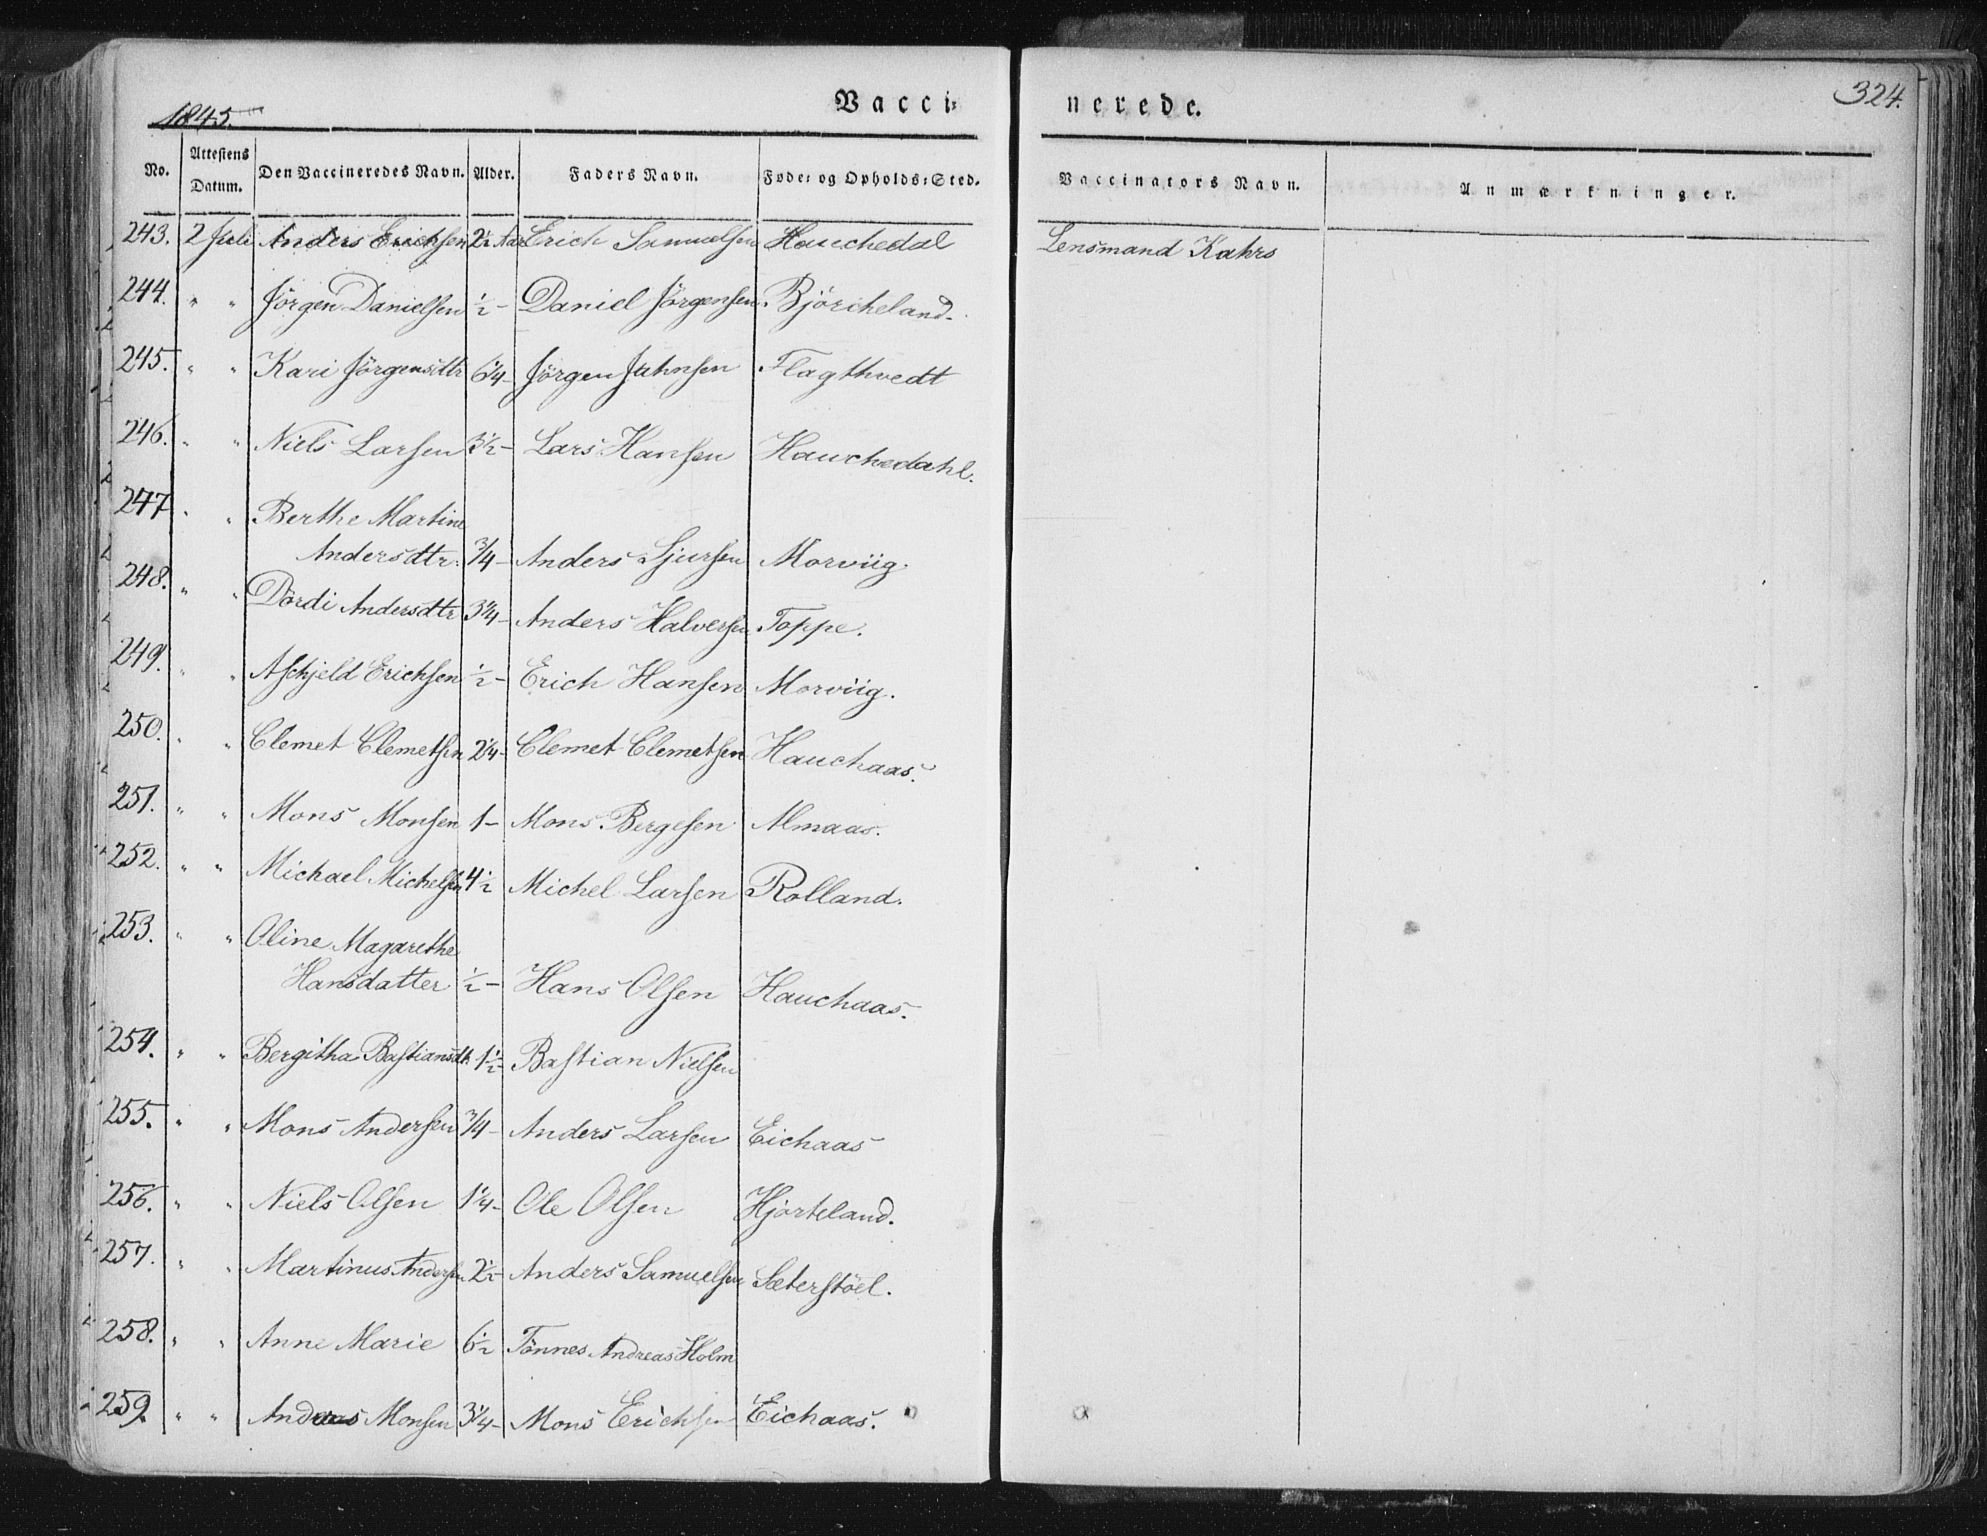 1845.
Vacci=
nerede.
324.
No. Attestens Datum. Den Vaccineredes Navn. Alder. Faders Navn. Føde= og Opholds=Sted. Vaccinators Navn. Anmærkninger.
243. 2 Juli Anders Erichsen 2½ Aar Erich Samuelsen Hauchedal Lensmand Kahrs
244. " " Jörgen Danielsen ½ - Daniel Jörgensen Björcheland.
245. " " Kari Jörgensdttr 6¼ - Jörgen Jahnsen Flagthvedt
246. " " Niels Larsen 3½ - Lars Hansen Hauchedahl.
247 " " Berthe Martine
Andersdtr. ¾ - Anders Sjursen Morviig.
248. " " Dördi Andersdtr 3¼ - Anders Halversen Toppe.
249. " " Aschjeld Erichsen ½ - Erich Hansen Morviig.
250. " " Clemet Clemetsen 2¼ - Clemet Clemetsen Hauchaas.
251. " " Mons Monsen 1 - Mons Bergesen Almaas.
252. " " Michael Michelsen 4½ Michel Larsen Rolland.
253. " " Oline Magarethe
Hansdatter ½ - Hans Olsen Hauchaas.
254. " " Bergitha Bastiansdt. 1½ - Bastian Nielsen
255. " " Mons Andersen ¾ - Anders Larsen Eichaas
256. " " Niels Olsen 1¼ - Ole Olsen Hjorteland.
257. " " Martinus Andersen 2½ - Anders Samuelsen Sæterstöel.
258. " " Anne Marie 6½ Tönnes Andreas Holm
259. " " Andreas Monsen 3¼ - Mons Erichsen Eichaas.